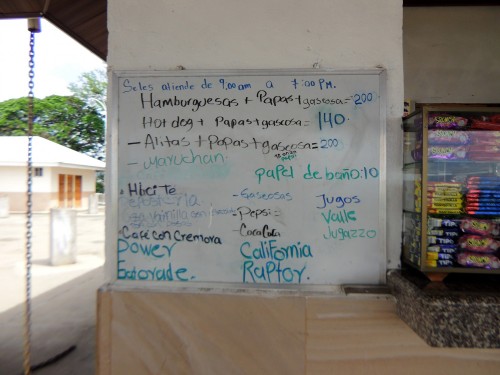 Seles atiende de 9:00 am a 7:00 P.M.
Hamburguesas + Papas + gaseosa = 200
Hot dog + Papas + gaseosa = 140
- Alitas + Papas + gaseosa = 200
- Maruchan
papel de baño: 10
Te
- Gaseosas
Jugos
- Pepsi
Valle
• Cafe con Cremora
- CocaCola
Jugazzo
Power
California
Gatorade.
Raptor.